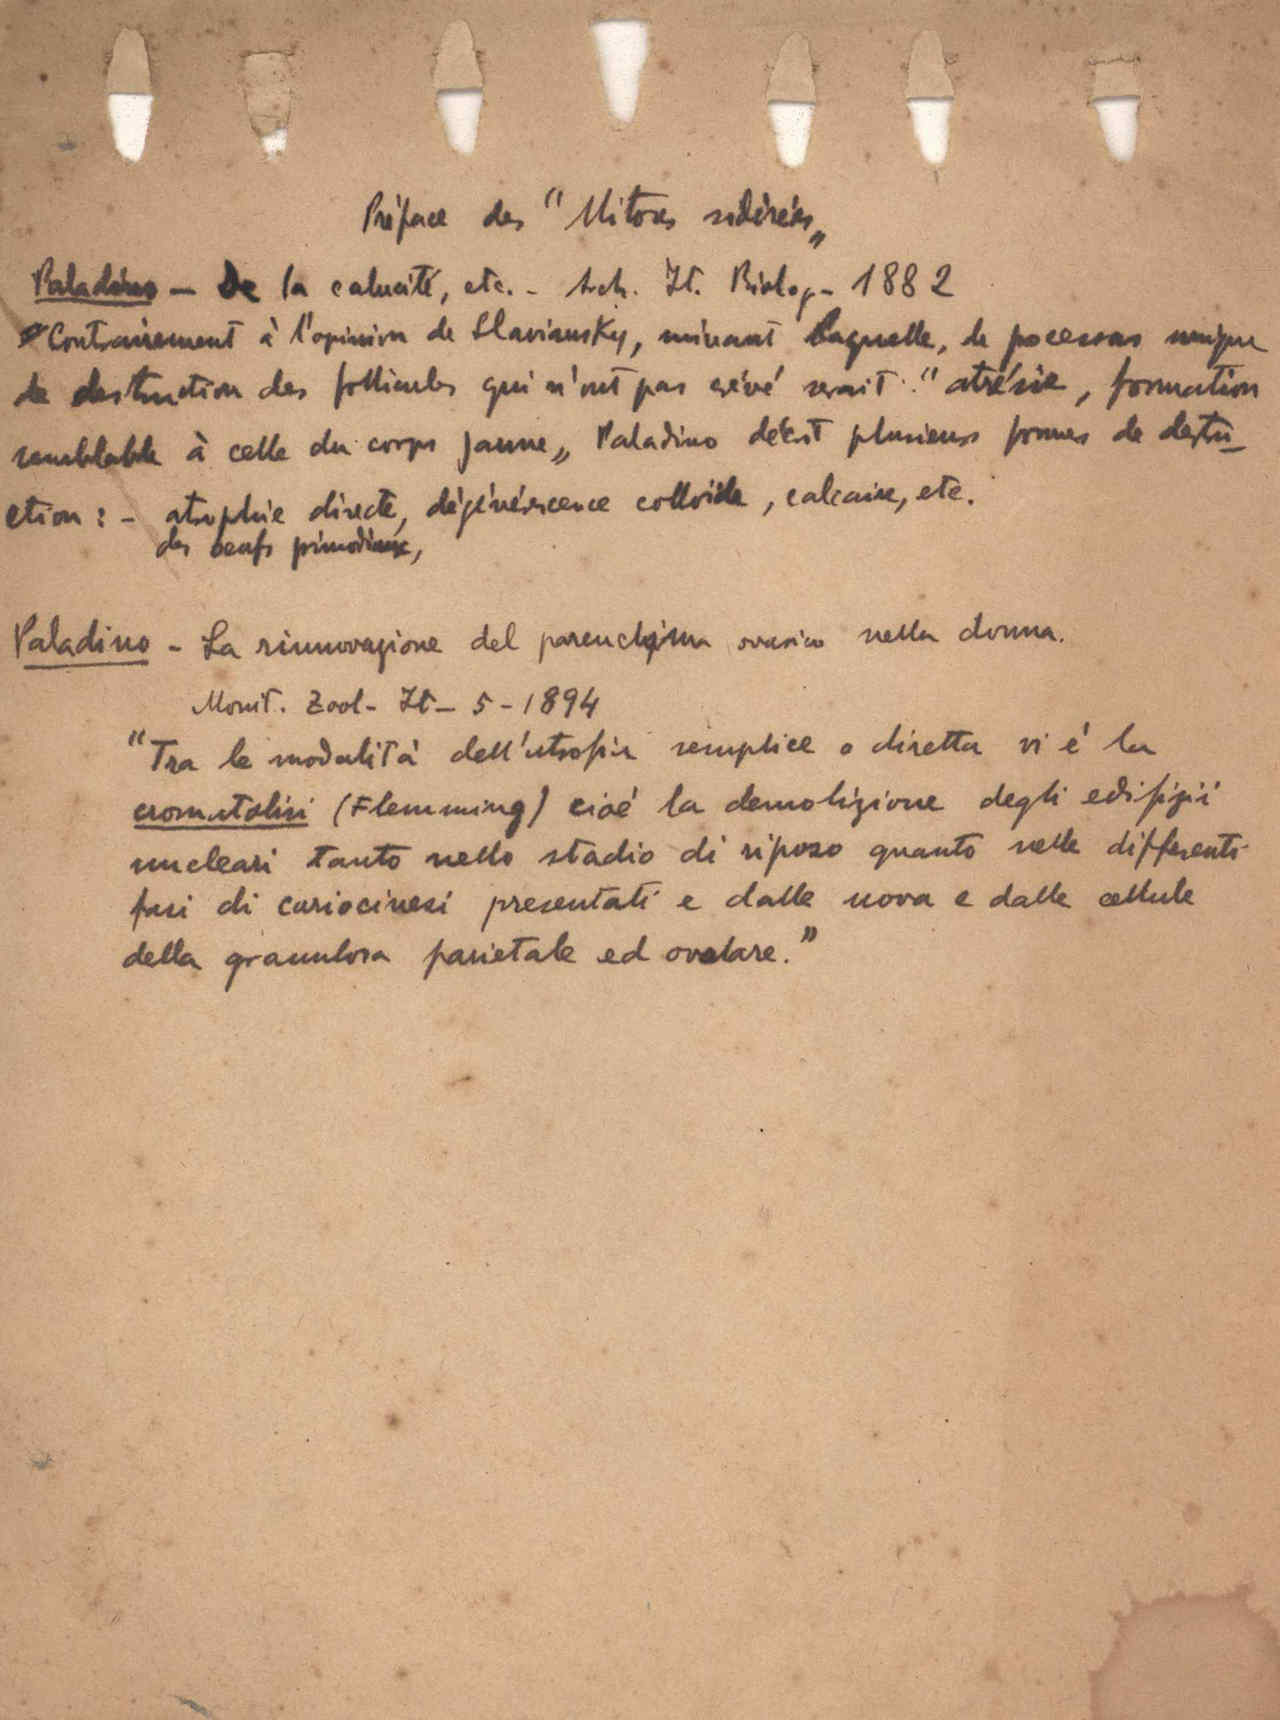 Préface des "Mitoses sidérées„
Paladino - De la caducité, etc. - Arch. It. Biolog - 1882
Contrairement à l'opinion de Slaviansky, suivant laquelle, le pocessus unique
de destruction des follicules qui n'ont pas crévé serait: "atrésie, formation
semblable à celle du corps jaune„ Paladino décrit plusieurs formes de destru-
ction: - atrophie directe, dégénérescence colloide, calcaire, etc.
des oeufs primordiaux,
Paladino - La rinnovazione del parenchima ovarico nella donna.
Monit. Zool - It - 5 - 1894
"Tra le modalità dell'atrofia semplice o diretta vi é la
cromatolisi (Flemming) cioé la demolizione degli edifizii
nucleari tanto nello stadio di riposo quanto nelle differenti
fasi di cariocinesi presentati e dalle uova e dalle cellule
della granulosa parietale ed ovulare."